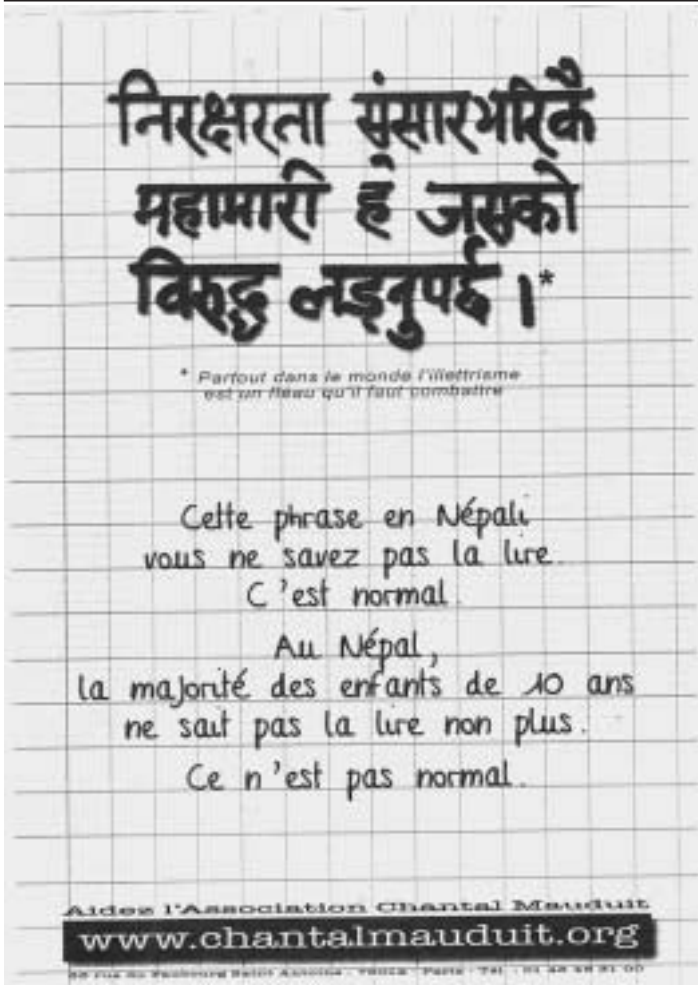 निरक्षरता संसारभरिकै
महामारी हो जसको
विरुद्ध लड्नुपर्छ ।*
* Partout dans le monde l'illettrisme
est un fléau qu'il faut combattre
Cette phrase en Népali
vous ne savez pas la lire.
C'est normal.
Au Népal,
la majorité des enfants de 10 ans
ne sait pas la lire non plus.
Ce n'est pas normal.
Aidez l'Association Chantal Mauduit
www.chantalmauduit.org
rue du Faubourg Saint Antoine - Paris - Tél. :